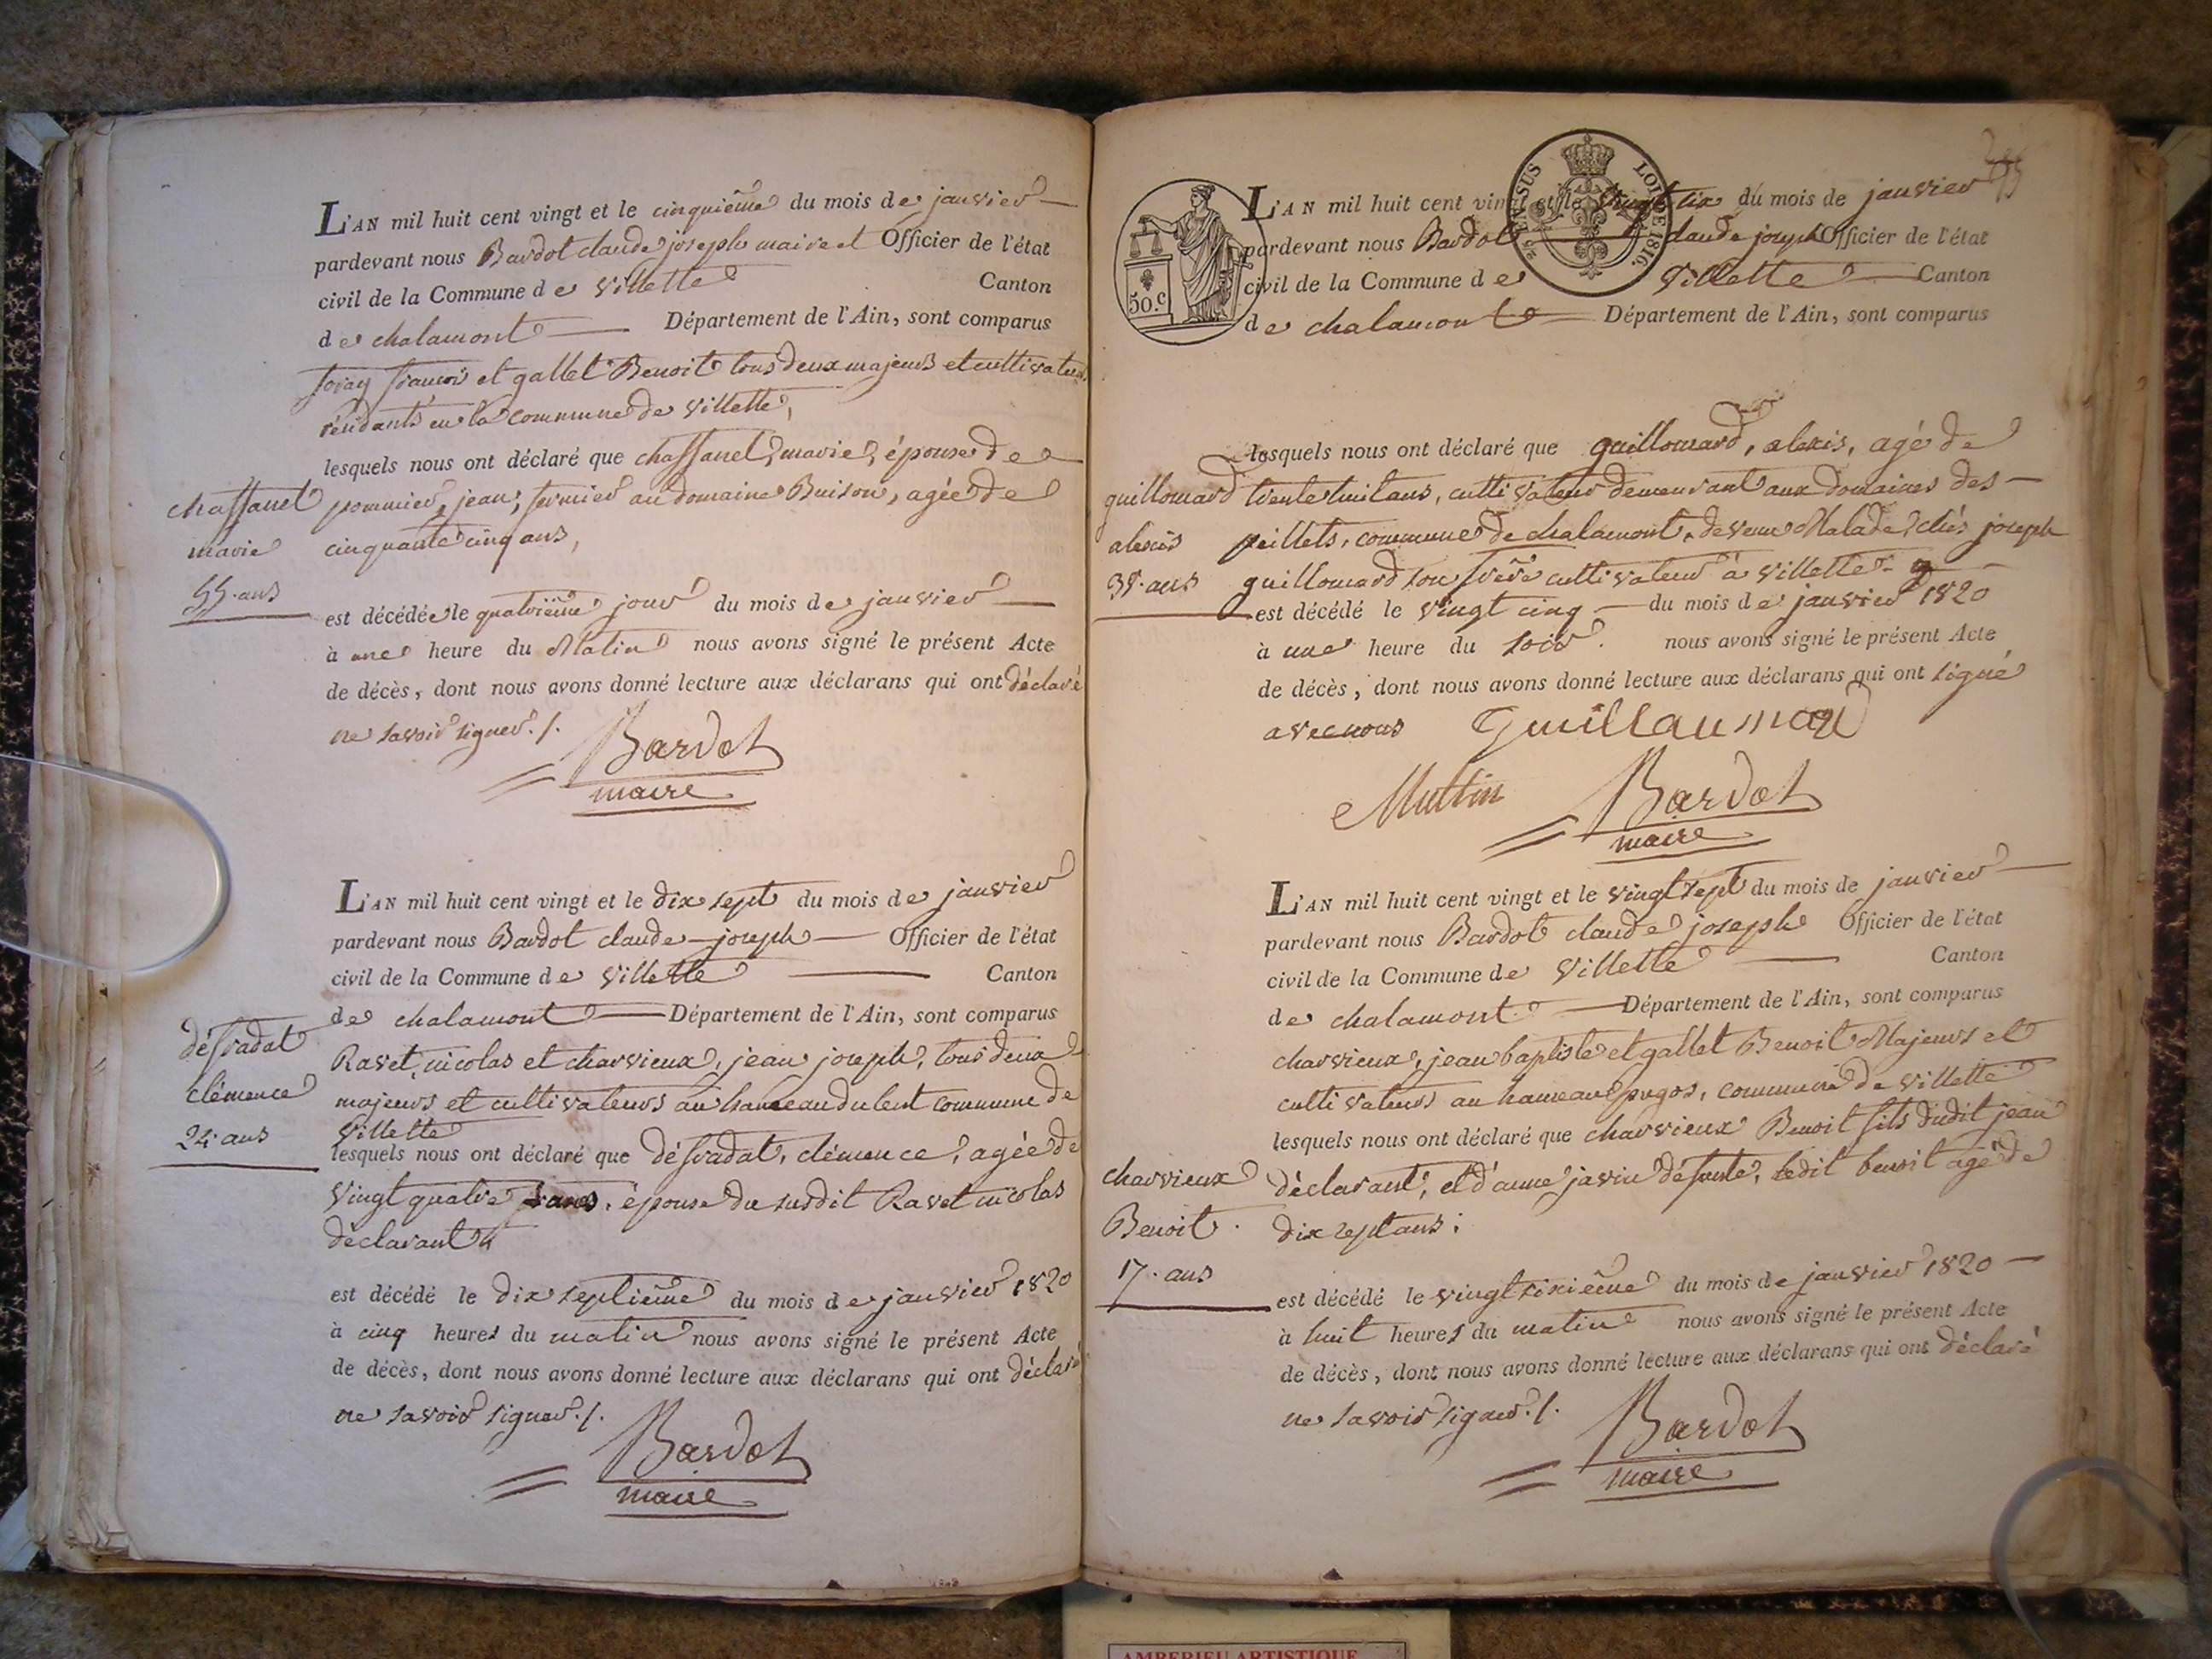 L'AN mil huit cent vingt et le cinquième du mois de janvier
pardevant nous Bardot claude joseph maire et Officier de l'état
civil de la Commune de villette Canton
de chalamont Département de l'Ain, sont comparus
françois et gallet Benoit tous deux majeurs et cultivateurs
résidants en la commune de villette,
lesquels nous ont déclaré que chaffanel, marie, épouse de
chaffanel
marie
55 ans
pommier, jean, fermier au domaine Buison, agée de
cinquante cinq ans,
est décédée le quatrième jour du mois de janvier
à une heure du Matin nous avons signé le présent Acte
de décès, dont nous avons donné lecture aux déclarans qui ont déclaré
ne savoir signer./.
Bardot
maire
L'AN mil huit cent vingt et le dix sept du mois de janvier
pardevant nous Bardot claude joseph Officier de l'état
civil de la Commune de villette Canton
de chalamont Département de l'Ain, sont comparus
défradat
clémence
24 ans
Ravet, nicolas et charvieux, jean joseph, tous deux
majeurs et cultivateurs au hameau commune de
villette
lesquels nous ont déclaré que défradat, clémence, agée de
vingt quatre ans, épouse du susdit Ravet nicolas
déclarant
est décédé le dix septième du mois de janvier 1820
à cinq heures du matin nous avons signé le présent Acte
de décès, dont nous avons donné lecture aux déclarans qui ont déclaré
ne savoir signer./.
Bardot
maire
50.c
SUSUS
LOI DE 1816.
L'AN mil huit cent vingt et le vingt six du mois de janvier
pardevant nous Bardot claude joseph Officier de l'état
civil de la Commune de Villette Canton
de chalamont Département de l'Ain, sont comparus
lesquels nous ont déclaré que guillomard, alexis, agé de
guillomard
alexis
38 ans
trente huit ans, cultivateur demeurant aux domaines des
peillets, commune de chalamont, devenu Malade chés joseph
guillomard son frère cultivateur à villette
est décédé le vingt cinq du mois de janvier 1820
à une heure du soir. nous avons signé le présent Acte
de décès, dont nous avons donné lecture aux déclarans qui ont signé
avec nous Guillaumar
Muttin
Bardot
maire
L'AN mil huit cent vingt et le vingt sept du mois de janvier
pardevant nous Bardot claude joseph Officier de l'état
civil de la Commune de villette Canton
de chalamont Département de l'Ain, sont comparus
charvieux, jean baptiste et gallet Benoit Majeurs et
cultivateurs au hameau commune de villette
lesquels nous ont déclaré que charvieux Benoit fils dudit jean
charvieux
Benoit
17 ans
déclarant, et d'anne défunte, ledit benoit agé de
dix sept ans;
est décédé le vingt sixième du mois de janvier 1820
à huit heures du matin nous avons signé le présent Acte
de décès, dont nous avons donné lecture aux déclarans qui ont déclaré
ne savoir signer./.
Bardot
maire
AMBERIEU ARTISTIQUE